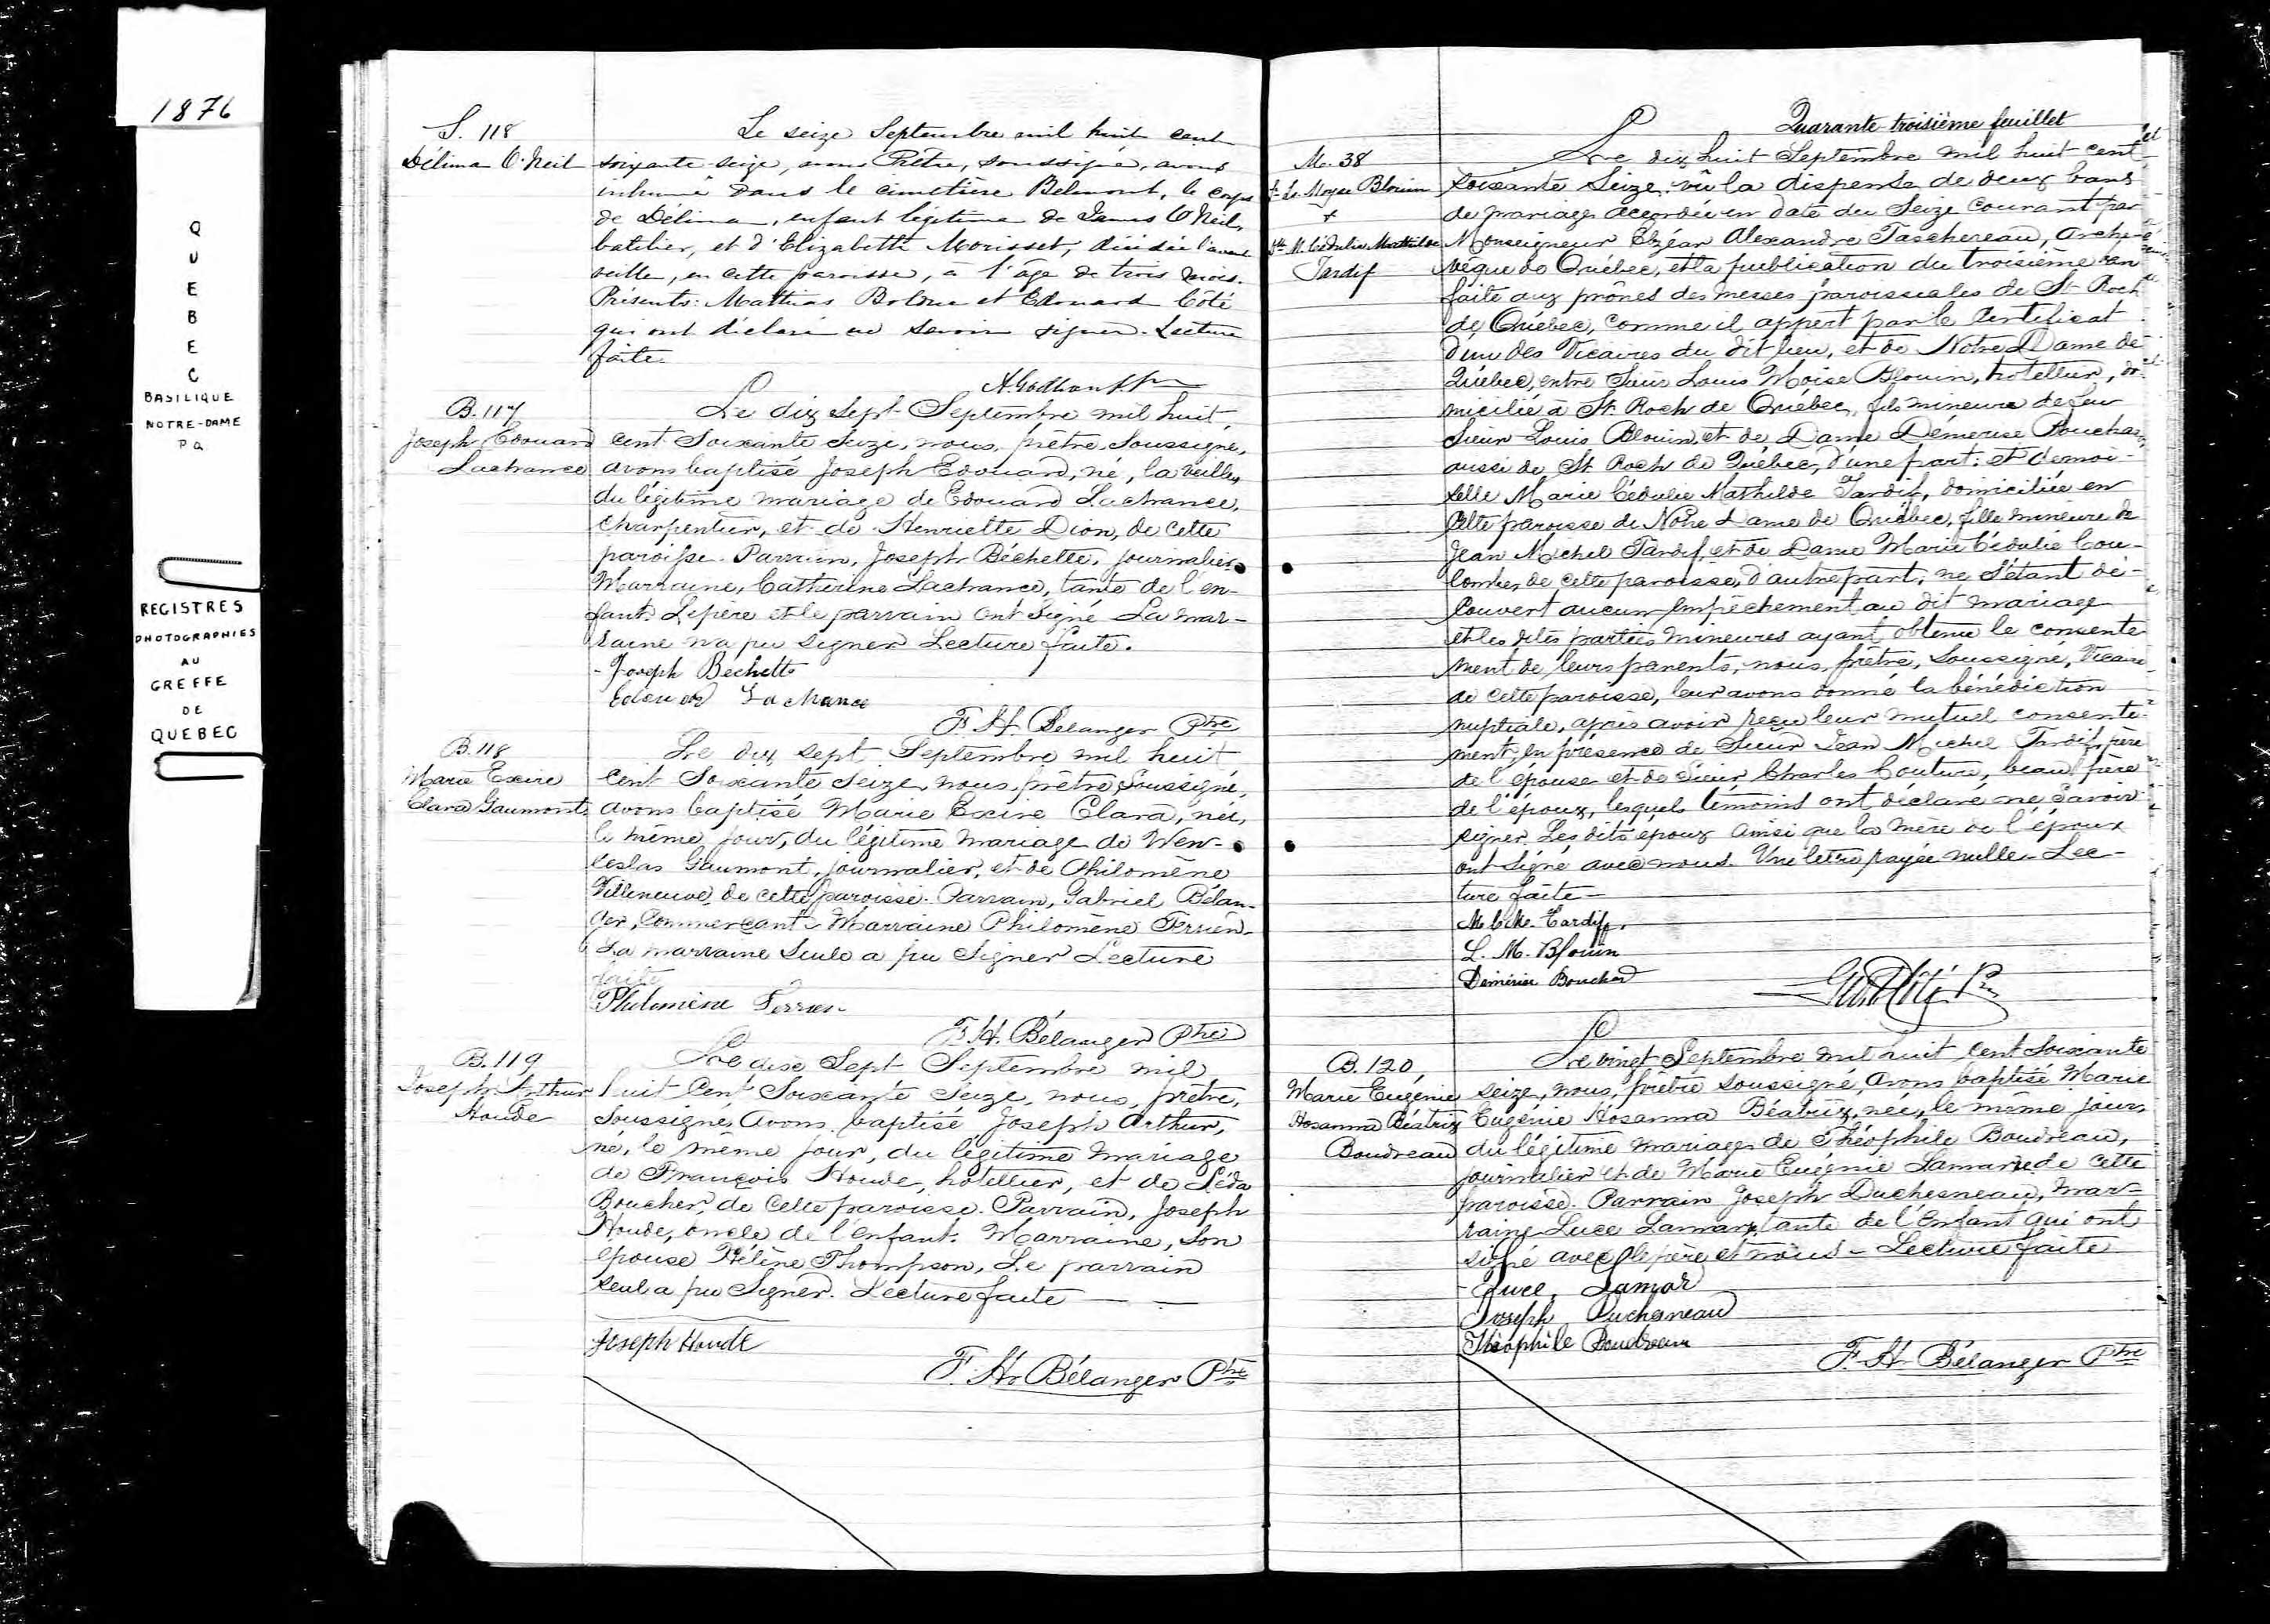 1876
QUEBEC
BASILIQUE
NOTRE-DAME
PQ
REGISTRES
PHOTOGRAPHIES
AU
GREFFE
DE
QUEBEC
S. 118
Délima O'Neil
Le seize Septembre mil huit cent
soixante-seize, nous Prêtre, soussigné, avons
inhumé dans le cimetière Belmont, le corps
de Délima, enfant légitime de James O'Neil,
batelier, et d'Elizabeth Morisset, décédée l'avant
veille, en cette paroisse, à l'âge de trois mois.
Présents: Mathias et Edouard Côté
qui ont déclaré ne savoir signer. Lecture
faite.
B. 117
Joseph Edouard
Lachance
Le dix sept Septembre mil huit
cent Soixante Seize, nous, prêtre, Soussigné,
avons baptisé Joseph Edouard, né, la veille,
du légitime mariage de Edouard Lachance,
charpentier, et de Henriette Dion, de cette
paroisse. Parrain, Joseph Béchette, journalier.
Marraine, Catherine Lachance, tante de l'en-
fant. Le père et le parrain ont signé La mar-
raine n'a pu signer Lecture faite.
Joseph Bechette
Edouard Lachance
F. H. Bélanger Ptre
B. 118
Marie Exire
Clara Gaumont
Le dix sept Septembre mil huit
cent Soixante Seize, nous, prêtre Soussigné,
avons baptisé Marie Exire Clara, née,
le même jour, du légitime mariage de Wen-
ceslas Gaumont, journalier, et de Philomène
Villeneuve, de cette paroisse. Parrain, Gabriel Bélan-
ger, Commerçant Marraine Philomène Ferrien.
La marraine seule a pu signer Lecture
faite
Philomène
F. H. Bélanger Ptre
B. 119
Joseph Arthur
Houde
Le dix Sept Septembre mil
huit Cent Soixante Seize, nous, prêtre,
Soussigné, avons baptisé Joseph Arthur,
né, le même jour, du légitime mariage
de François Houde, hotellier, et de Léda
Boucher, de cette paroisse. Parrain, Joseph
Houde, oncle de l'enfant. Marraine, son
épouse Hélène Thompson, Le parrain
seul a pu signer. Lecture faite
Joseph Houde
F. H. Bélanger Ptre
Quarante-troisième feuillet
M. 38
Ls. Moyse Blouin
+
Dlle M. Cédulie Mathilde
Tardif
Le dix huit Septembre mil huit cent
soixante Seize, vû la dispense de deux bans
de mariage accordée en date du Seize courant par
Monseigneur Elzéar Alexandre Taschereau, Arche-
vêque de Québec, et la publication du troisième ban
faite aux prônes des messes paroissiales de St Roch
de Québec, comme il appert par le Certificat
d'un des Vicaires du dit lieu, et de Notre Dame de
Québec, entre Sieur Louis Moïse Blouin, hotellier, do-
micilié à St. Roch de Québec, fils mineur de feu
Sieur Louis Blouin et de Dame Démerise Bouchard,
aussi de St Roch de Québec, d'une part; et demoi-
selle Marie Cédulie Mathilde Tardif, domiciliée en
cette paroisse de Notre Dame de Québec, fille mineure de
Jean Michel Tardif, et de Dame Marie Cédulie Cou-
lombe, de cette paroisse, d'autre part; ne s'étant dé-
couvert aucun empêchement au dit mariage
et les dites parties mineures ayant obtenu le consente
ment de leurs parents, nous, prêtre, Soussigné, Vicaire
de cette paroisse, leur avons donné la bénédiction
nuptiale, après avoir reçu leur mutuel consente-
ment, en présence de Sieur Jean Michel Tardif, père
de l'épouse et de Sieur Charles Couture, beau frère
de l'époux, lesquels témoins ont déclaré ne savoir
signer. Les dits époux ainsi que la mère de l'époux
ont signé avec nous. Une lettre rayée nulle. Lec-
ture faite
M. C. M. Tardif.
L. M. Blouin
Démérise Bouchard
B. 120,
Marie Eugénie
Hosanna Béatrix
Boudreau
Le vingt Septembre mil huit cent soixante
seize, nous, prêtre soussigné, avons baptisé Marie
Eugénie Hosanna Béatrix, née, le même jour,
du légitime mariage de Théophile Boudreau,
journalier et de Marie Eugénie Lamarre de cette
paroisse. Parrain Joseph Duchesneau, mar-
raine Luce Lamarre tante de l'enfant qui ont
signé avec le père et nous - Lecture faite
Luce Lamar
Joseph Duchaneau
Théophile Boudreau
F. H. Bélanger Ptre